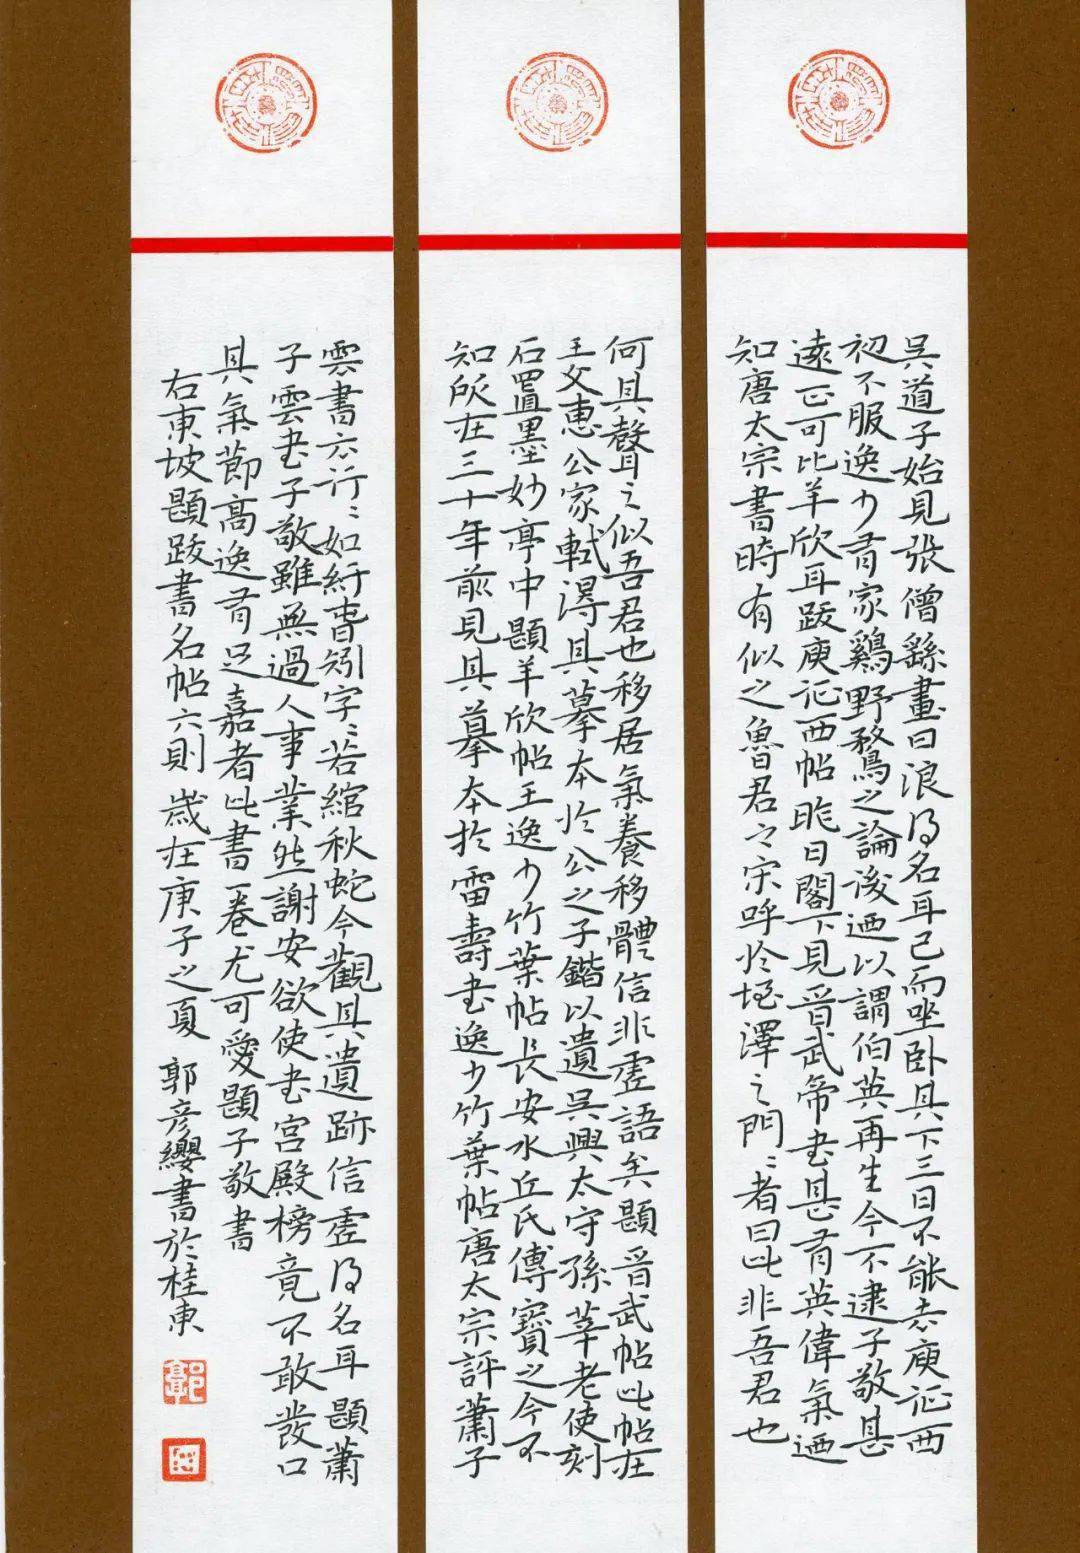 吳道子始見張僧繇畫曰浪得名耳已而坐卧其下三日不能去庾征西
初不服逸少有家鷄野鶩之論後迺以謂伯英再生今不逮子敬甚
遠正可比羊欣耳跋庾征西帖昨日閣下見晉武帝書甚有英偉氣迺
知唐太宗書時有似之魯君之宋呼於垤澤之門〻者曰此非吾君也
何其聲之似吾君也移居氣養移體信非虛語矣題晉武帖此帖在
王文惠公家軾得其摹本於公之子鍇以遺吳興太守孫莘老使刻
石置墨妙亭中題羊欣帖王逸少竹葉帖長安水丘氏傳寶之今不
知所在三十年前見其摹本於雷壽書逸少竹葉帖唐太宗評蕭子
雲書云行〻如紆春蚓字〻若綰秋蛇今觀其遺跡信虛得名耳題蕭
子雲書子敬雖無過人事業然謝安欲使書宮殿榜竟不敢發口
其氣節高逸有足嘉者此書一卷尤可愛題子敬書
右東坡題跋書名帖六則 歲在庚子之夏 郭彦纓書於桂東
郭